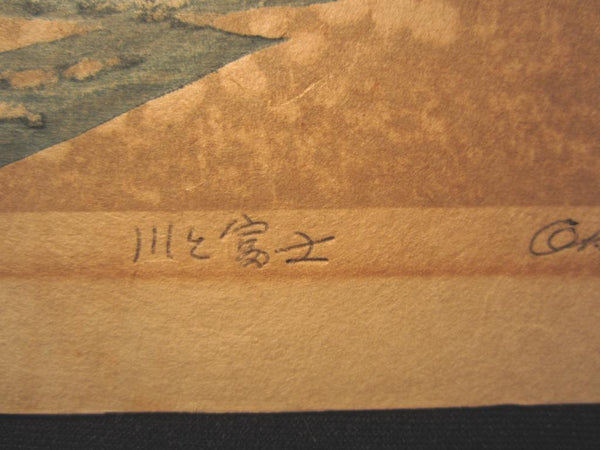 川と富士